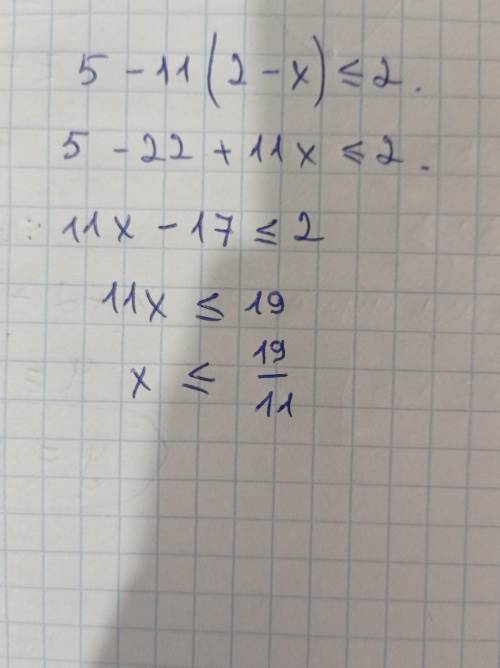 5 - 11(2 - x) ≤ 2.
5 - 22 + 11x ≤ 2.
11x - 17 ≤ 2
11x ≤ 19
x ≤ 19/11